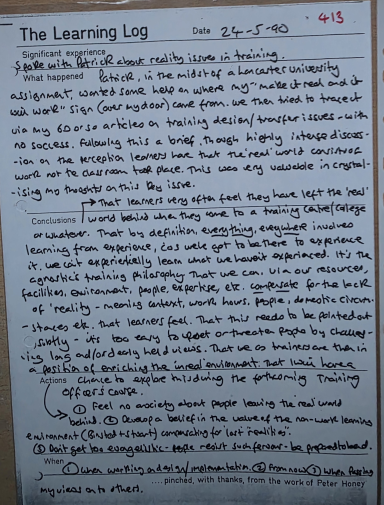 413
The Learning Log Date 24-5-90
Significant experience
Spoke with Patrick about reality issues in training.
What happened Patrick, in the midst of a Lancaster University
assignment, wanted some help on where my "make it real and it
will work" sign (over my door) came from. We then tried to trace it
via my 60 or so articles on training design/transfer issues - with
no success. Following this a brief, though highly intense discuss-
-ion on the perception learners have that the 'real' world consists of
work not the classroom took place. This was very valuable in crystal-
-ising my thoughts on this key issue.
That learners very often feel they have left the 'real'
Conclusions world behind when they come to a training centre/college
or whatever. That by definition, everything, everywhere involves
learning from experience, cos we've got to be there to experience
it, we can't experientially learn what we haven't experienced. It's the
agnostic's training philosophy. That we can, via our resources,
facilities, environment, people, expertise, etc. compensate for the lack
of 'reality' - meaning context, work hours, people, domestic circum-
-stances etc. that learners feel. That this needs to be pointed out
subtly - it's too easy to upset or threaten people by challeng-
-ing long and/or dearly held views. That we as trainers are then in
a position of enriching the unreal environment. That I will have a
Actions chance to explore this during the forthcoming Training
Officers Course.
① Feel no anxiety about people leaving the real world
behind. ② Develop a belief in the value of the non-work learning
environment compensating for 'lost realities'.
③ Don't get too evangelistic - people resist such fervour - be prepared to
When ① When working on design/implementation. ② From now ③ When passing
my views on to others.
.... pinched, with thanks, from the work of Peter Honey